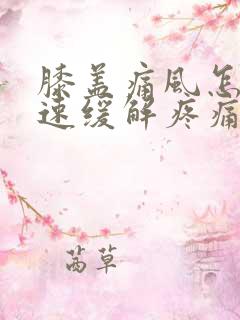 膝盖痛风怎
速缓解疼痛
茜草